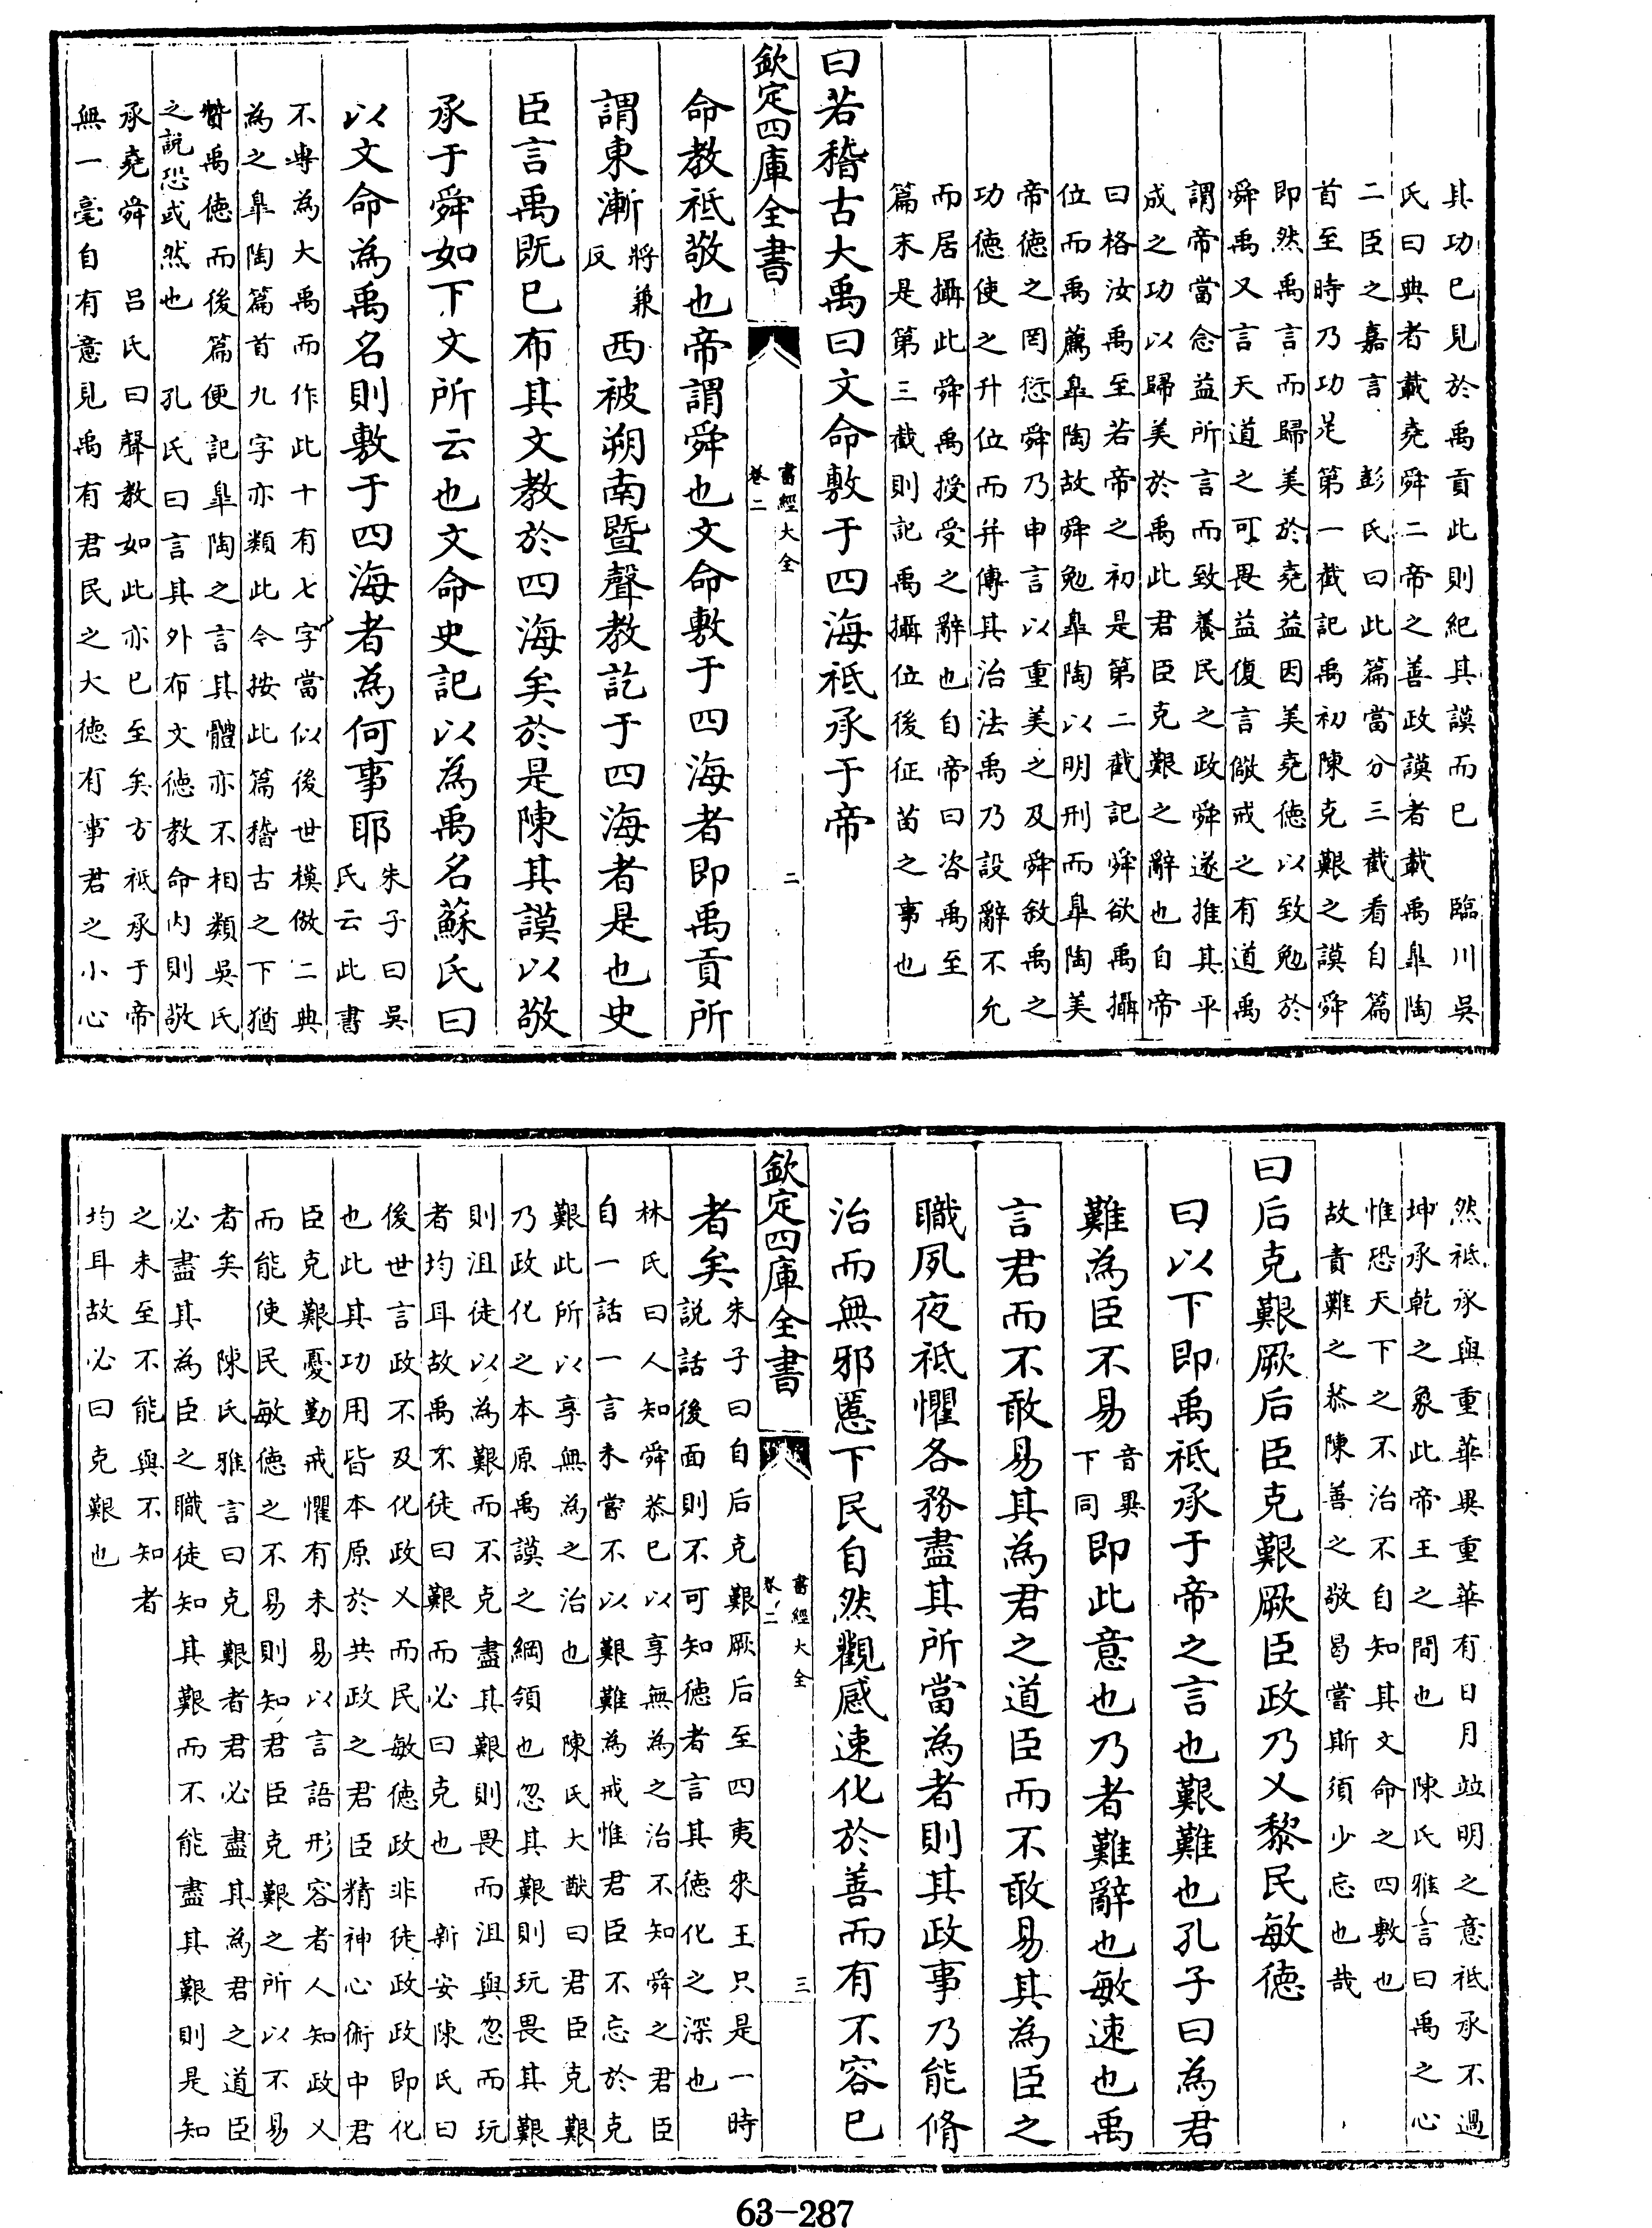 其功已見於禹貢此則紀其謨而已　臨川吳
氏曰典者載堯舜二帝之善政謨者載禹臯陶
二臣之嘉言　彭氏曰此篇當分三截看自篇
首至時乃功是第一截記禹初陳克艱之謨舜
即然禹言而歸美於堯益因美堯德以致勉於
舜禹又言天道之可畏益復言儆戒之有道禹
謂帝當念益所言而致養民之政舜遂推其平
成之功以歸美於禹此君臣克艱之辭也自帝
曰格汝禹至若帝之初是第二截記舜欲禹攝
位而禹薦臯陶故舜勉臯陶以明刑而臯陶美
帝德之罔愆舜乃申言以重美之及舜敘禹之
功德使之升位而并傳其治法禹乃設辭不允
而居攝此舜禹授受之辭也自帝曰咨禹至
篇末是第三截則記禹攝位後征苗之事也
曰若稽古大禹曰文命敷于四海祗承于帝
欽定四庫全書
書經大全
卷二
二
命教祗敬也帝謂舜也文命敷于四海者即禹貢所
謂東漸
將兼
反
西被朔南暨聲教訖于四海者是也史
臣言禹既已布其文教於四海矣於是陳其謨以敬
承于舜如下文所云也文命史記以為禹名蘇氏曰
以文命為禹名則敷于四海者為何事耶
朱子曰吳
氏云此書
不專為大禹而作此十有七字當似後世模倣二典
為之臯陶篇首九字亦類此今按此篇稽古之下猶
贊禹德而後篇便記臯陶之言其體亦不相類吳氏
之說恐或然也　孔氏曰言其外布文德教命内則敬
承堯舜　呂氏曰聲教如此亦已至矣方祗承于帝
無一毫自有意見禹有君民之大德有事君之小心
然祗承與重華異重華有日月竝明之意祗承不過
坤承乾之象此帝王之間也　陳氏雅言曰禹之心
惟恐天下之不治不自知其文命之四敷也
故責難之恭陳善之敬曷嘗斯須少忘也哉
曰后克艱厥后臣克艱厥臣政乃乂黎民敏德
曰以下即禹祗承于帝之言也艱難也孔子曰為君
難為臣不易
音異
下同
即此意也乃者難辭也敏速也禹
言君而不敢易其為君之道臣而不敢易其為臣之
職夙夜祗懼各務盡其所當為者則其政事乃能脩
治而無邪慝下民自然觀感速化於善而有不容已
欽定四庫全書
書經大全
卷二
三
者矣
朱子曰自后克艱厥后至四夷來王只是一時
說話後面則不可知德者言其德化之深也
林氏曰人知舜恭已以享無為之治不知舜之君臣
自一話一言未嘗不以艱難為戒惟君臣不忘於克
艱此所以享無為之治也　陳氏大猷曰君臣克艱
乃政化之本原禹謨之綱領也忽其艱則玩畏其艱
則沮徒以為艱而不克盡其艱則畏而沮與忽而玩
者均耳故禹不徒曰艱而必曰克也　新安陳氏曰
後世言政不及化政乂而民敏德政非徒政政即化
也此其功用皆本原於共政之君臣精神心術中君
臣克艱憂勤戒懼有未易以言語形容者人知政乂
而能使民敏德之不易則知君臣克艱之所以不易
者矣　陳氏雅言曰克艱者君必盡其為君之道臣
必盡其為臣之職徒知其艱而不能盡其艱則是知
之未至不能與不知者
均耳故必曰克艱也
63-287